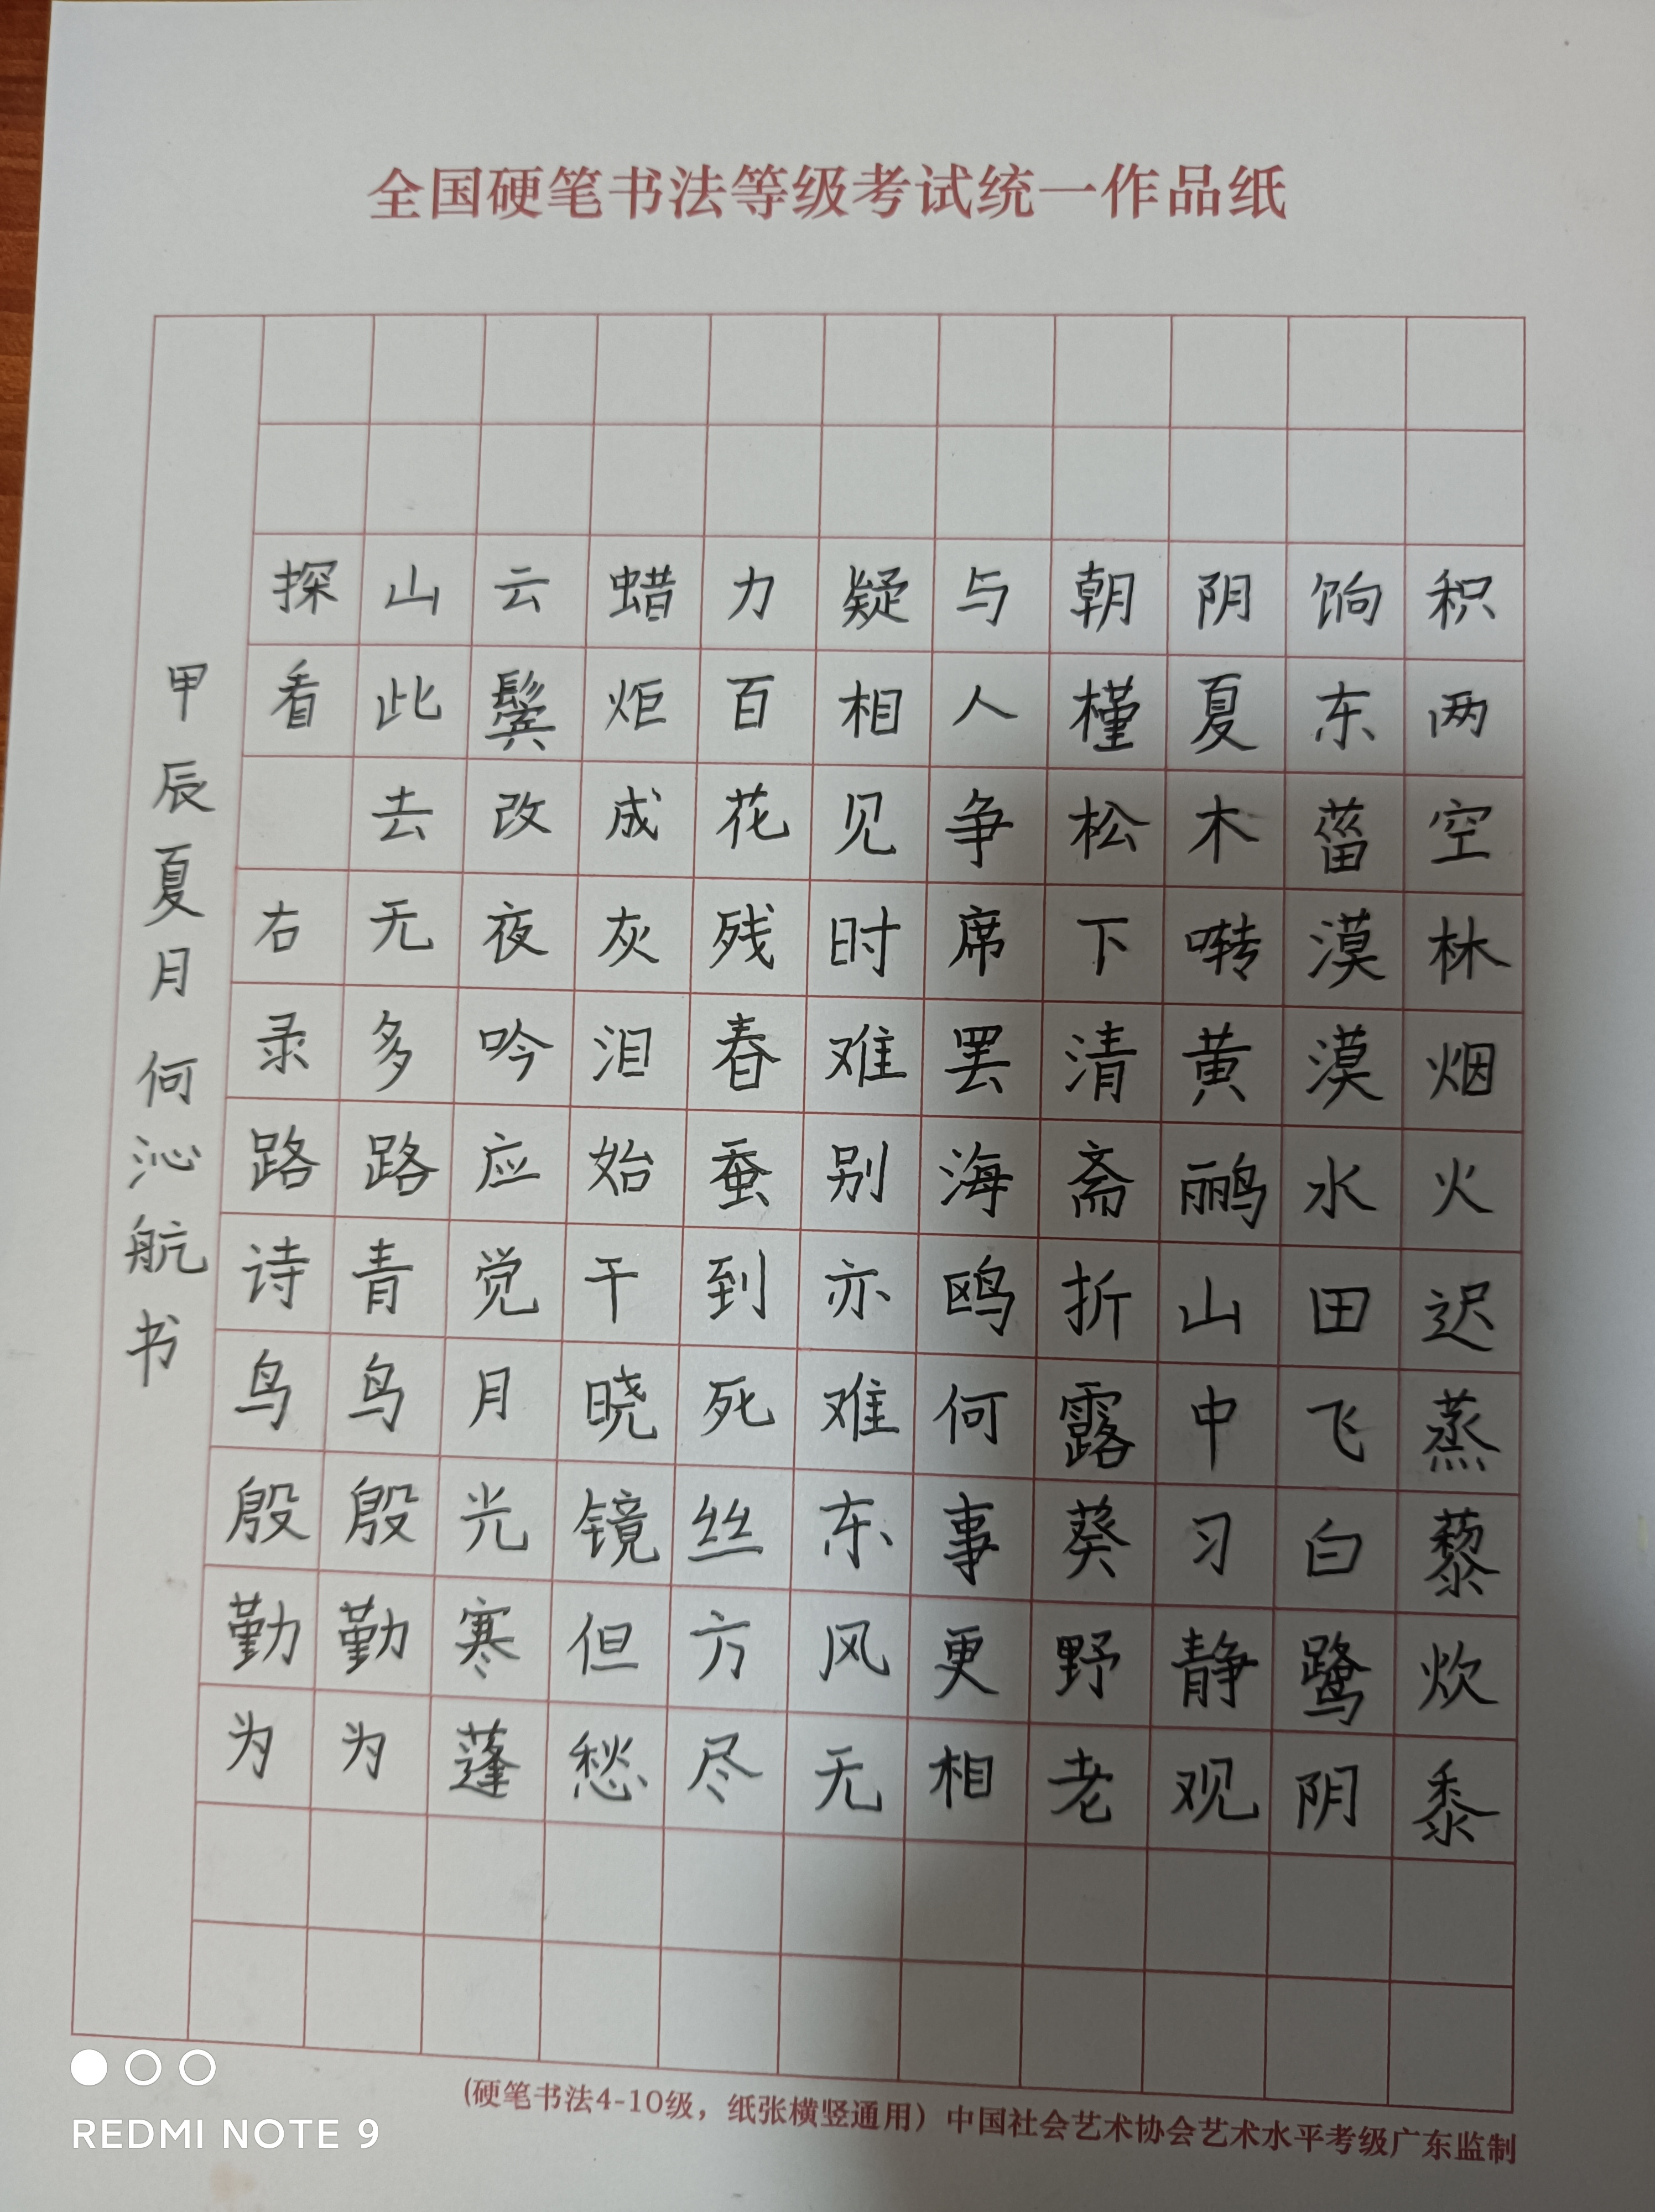 全国硬笔书法等级考试统一作品纸
积两空林烟火迟蒸藜炊黍
饷东菑漠漠水田飞白鹭阴
阴夏木啭黄鹂山中习静观
朝槿松下清斋折露葵野老
与人争席罢海鸥何事更相
疑相见时难别亦难东风无
力百花残春蚕到死丝方尽
蜡炬成灰泪始干晓镜但愁
云鬓改夜吟应觉月光寒蓬
山此去无多路青鸟殷勤为
探看 右录路诗鸟殷勤为
甲辰夏月何沁航书
(硬笔书法4-10级，纸张横竖通用) 中国社会艺术协会艺术水平考级广东监制
REDMI NOTE 9